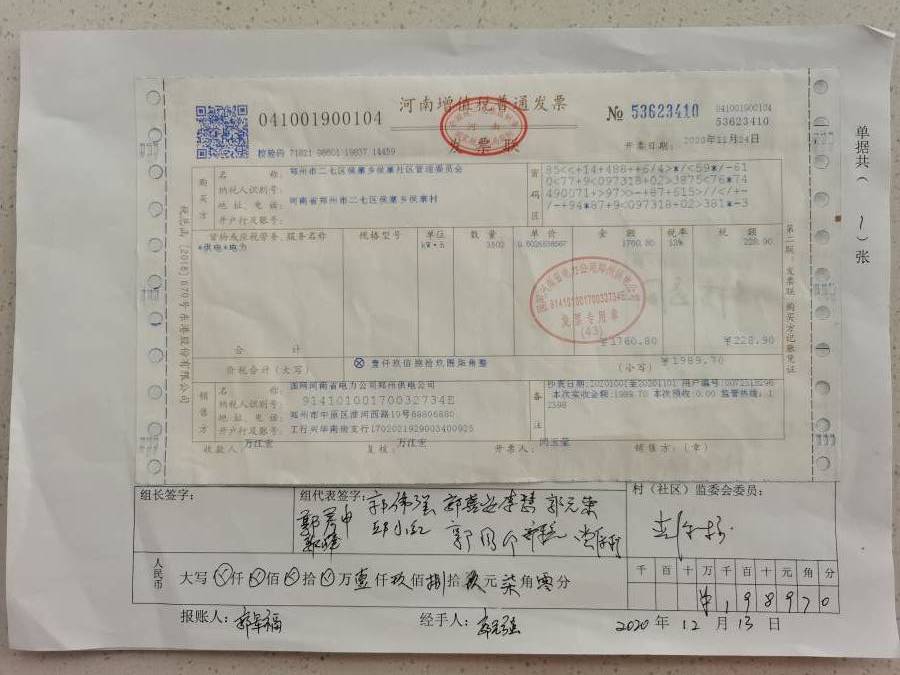 河南增值税普通发票
041001900104
№ 53623410
041001900104
53623410
校验码 71821 98601 19837 14459
发票联
开票日期：2020年11月24日
购买方
名称：郑州市二七区侯寨乡侯寨社区管理委员会
纳税人识别号：
地址、电话：河南省郑州市二七区侯寨乡侯寨村
开户行及账号：
密码区
85<<+14+488++6/4>*/<59*/-61
0<77+9<097318+02>3875<76*74
490071+>97>>-+87+615>//</+-
/-+94*87+9<097318+02>381*-3
货物或应税劳务、服务名称 规格型号 单位 数量 单价 金额 税率 税额
*供电*电力 kW·h 3502 1760.80 13% 228.90
国网河南省电力公司郑州供电公司
91410100170032734E
发票专用章
(43)
合计 ¥1760.80 ¥228.90
价税合计（大写） ⊗ 壹仟玖佰捌拾玖圆柒角整 （小写） ¥1989.70
销售方
名称：国网河南省电力公司郑州供电公司
纳税人识别号：91410100170032734E
地址、电话：郑州市中原区淮河西路19号68806880
开户行及账号：工行兴华南街支行1702021929003400925
备注
抄表日期:20201001至20201101 用户编号:0072518296
本次实收金额:1989.70 本次预收:0.00 监管热线:1
2398
收款人：万江宏 复核：万江宏 开票人： 销售方：（章）
税总函[2018]670号东港股份有限公司
第二联：发票联 购买方记账凭证
单据共（1）张
组长签字：
组代表签字：郭伟强
村（社区）监委会委员：
人民币
大写 仟 佰 拾 万壹仟玖佰捌拾玖元柒角零分
千 百 十 万 千 百 十 元 角 分
¥ 1 9 8 9 7 0
报账人：郭卓福 经手人： 2020 年 12 月 13 日